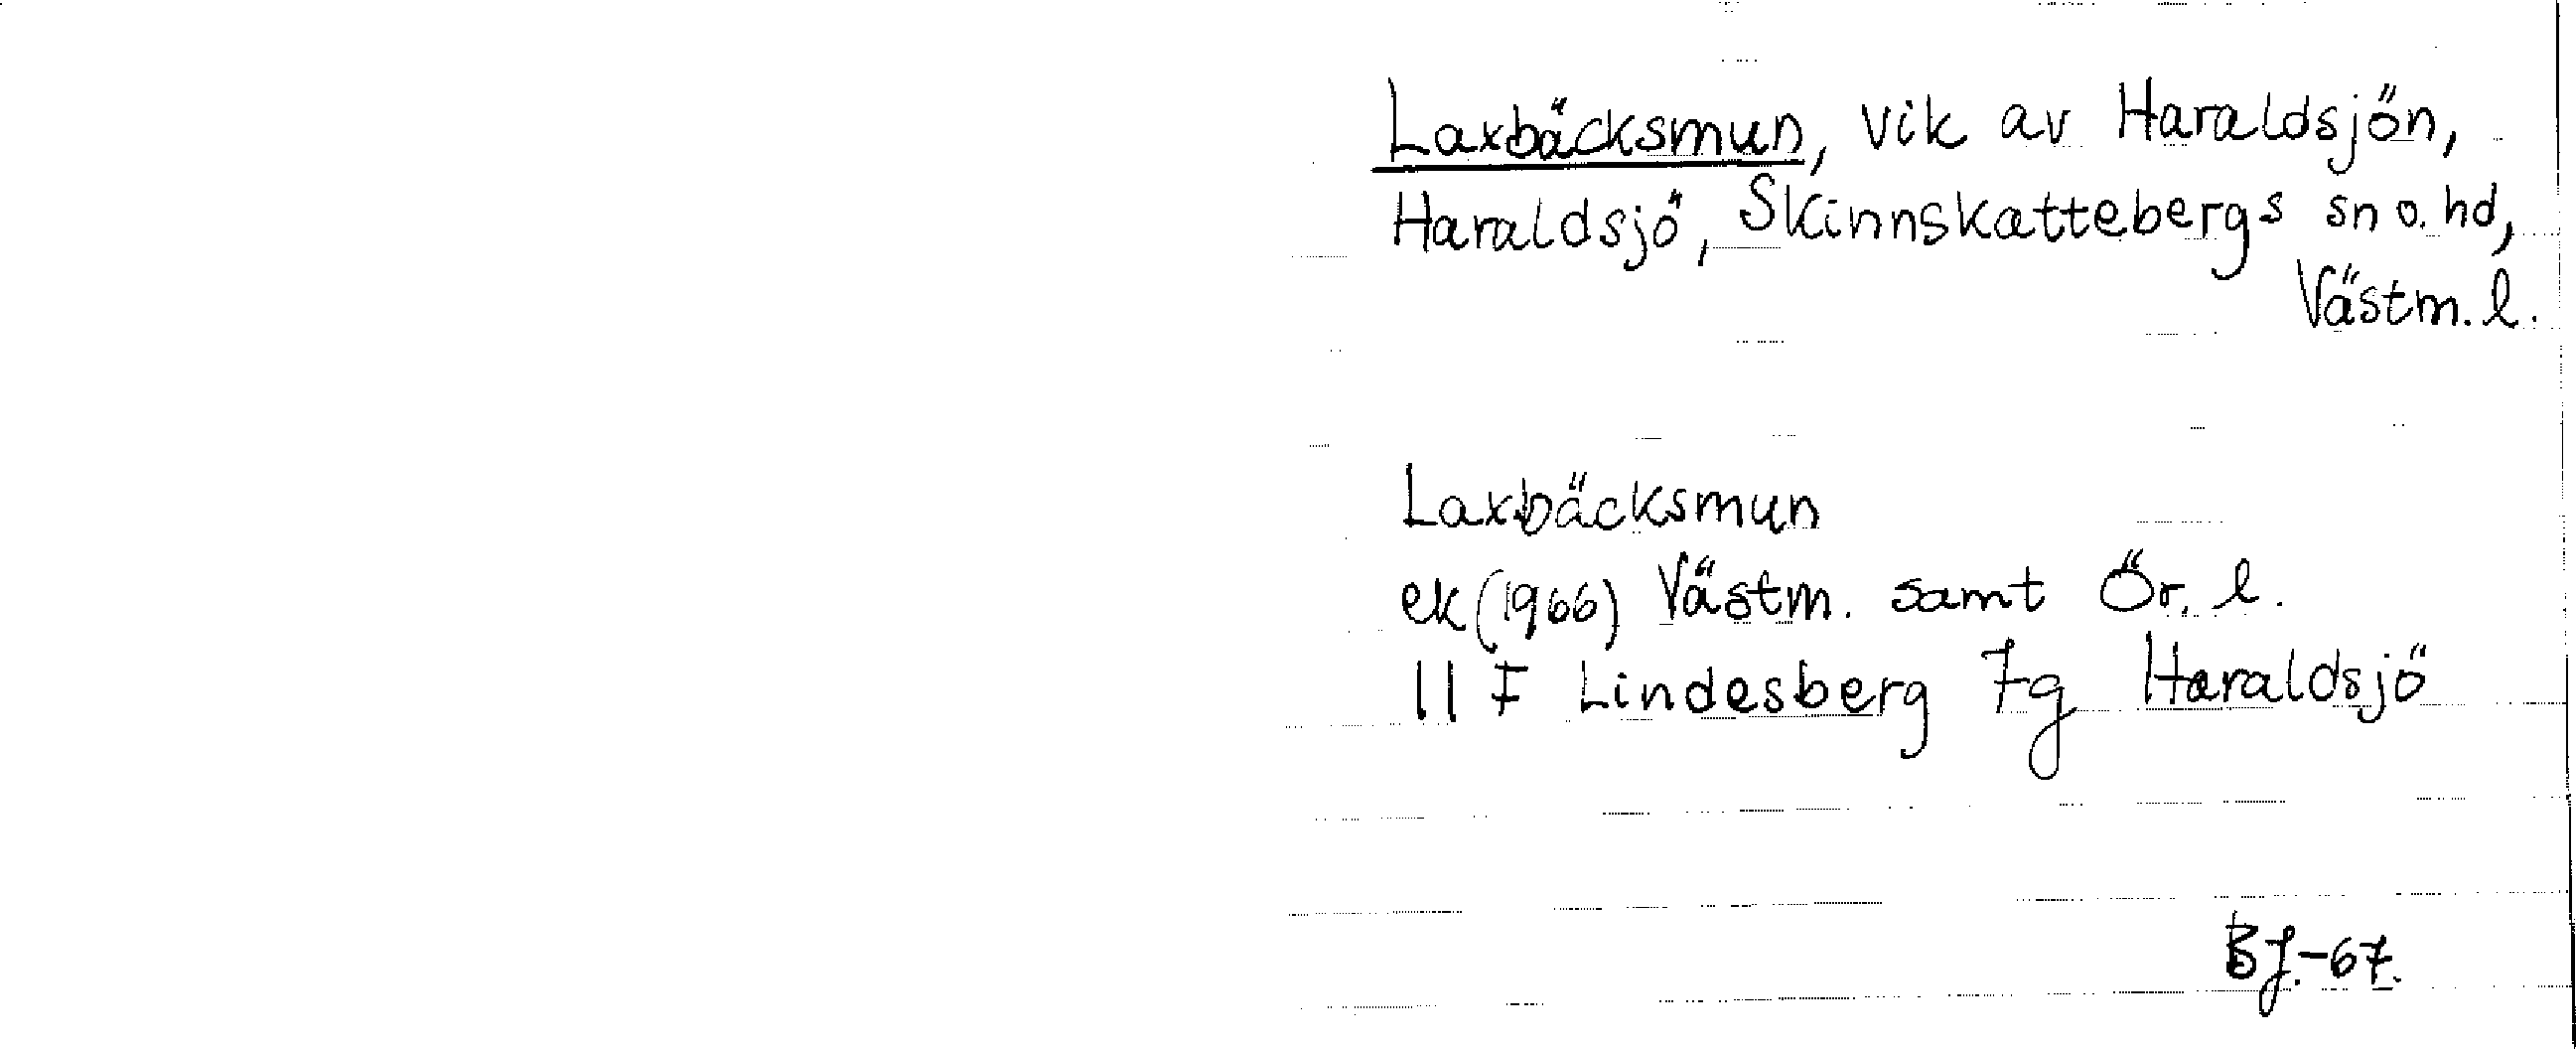 Laxbäcksmun, vik av Haraldsjön,
Haraldsjö, Skinnskattebergs sn o. hd,
Västm. l.
Laxbäcksmun
ek (1966) Västm. samt Ör. l.
11 F Lindesberg 7g Haraldsjö
BJ.-67.